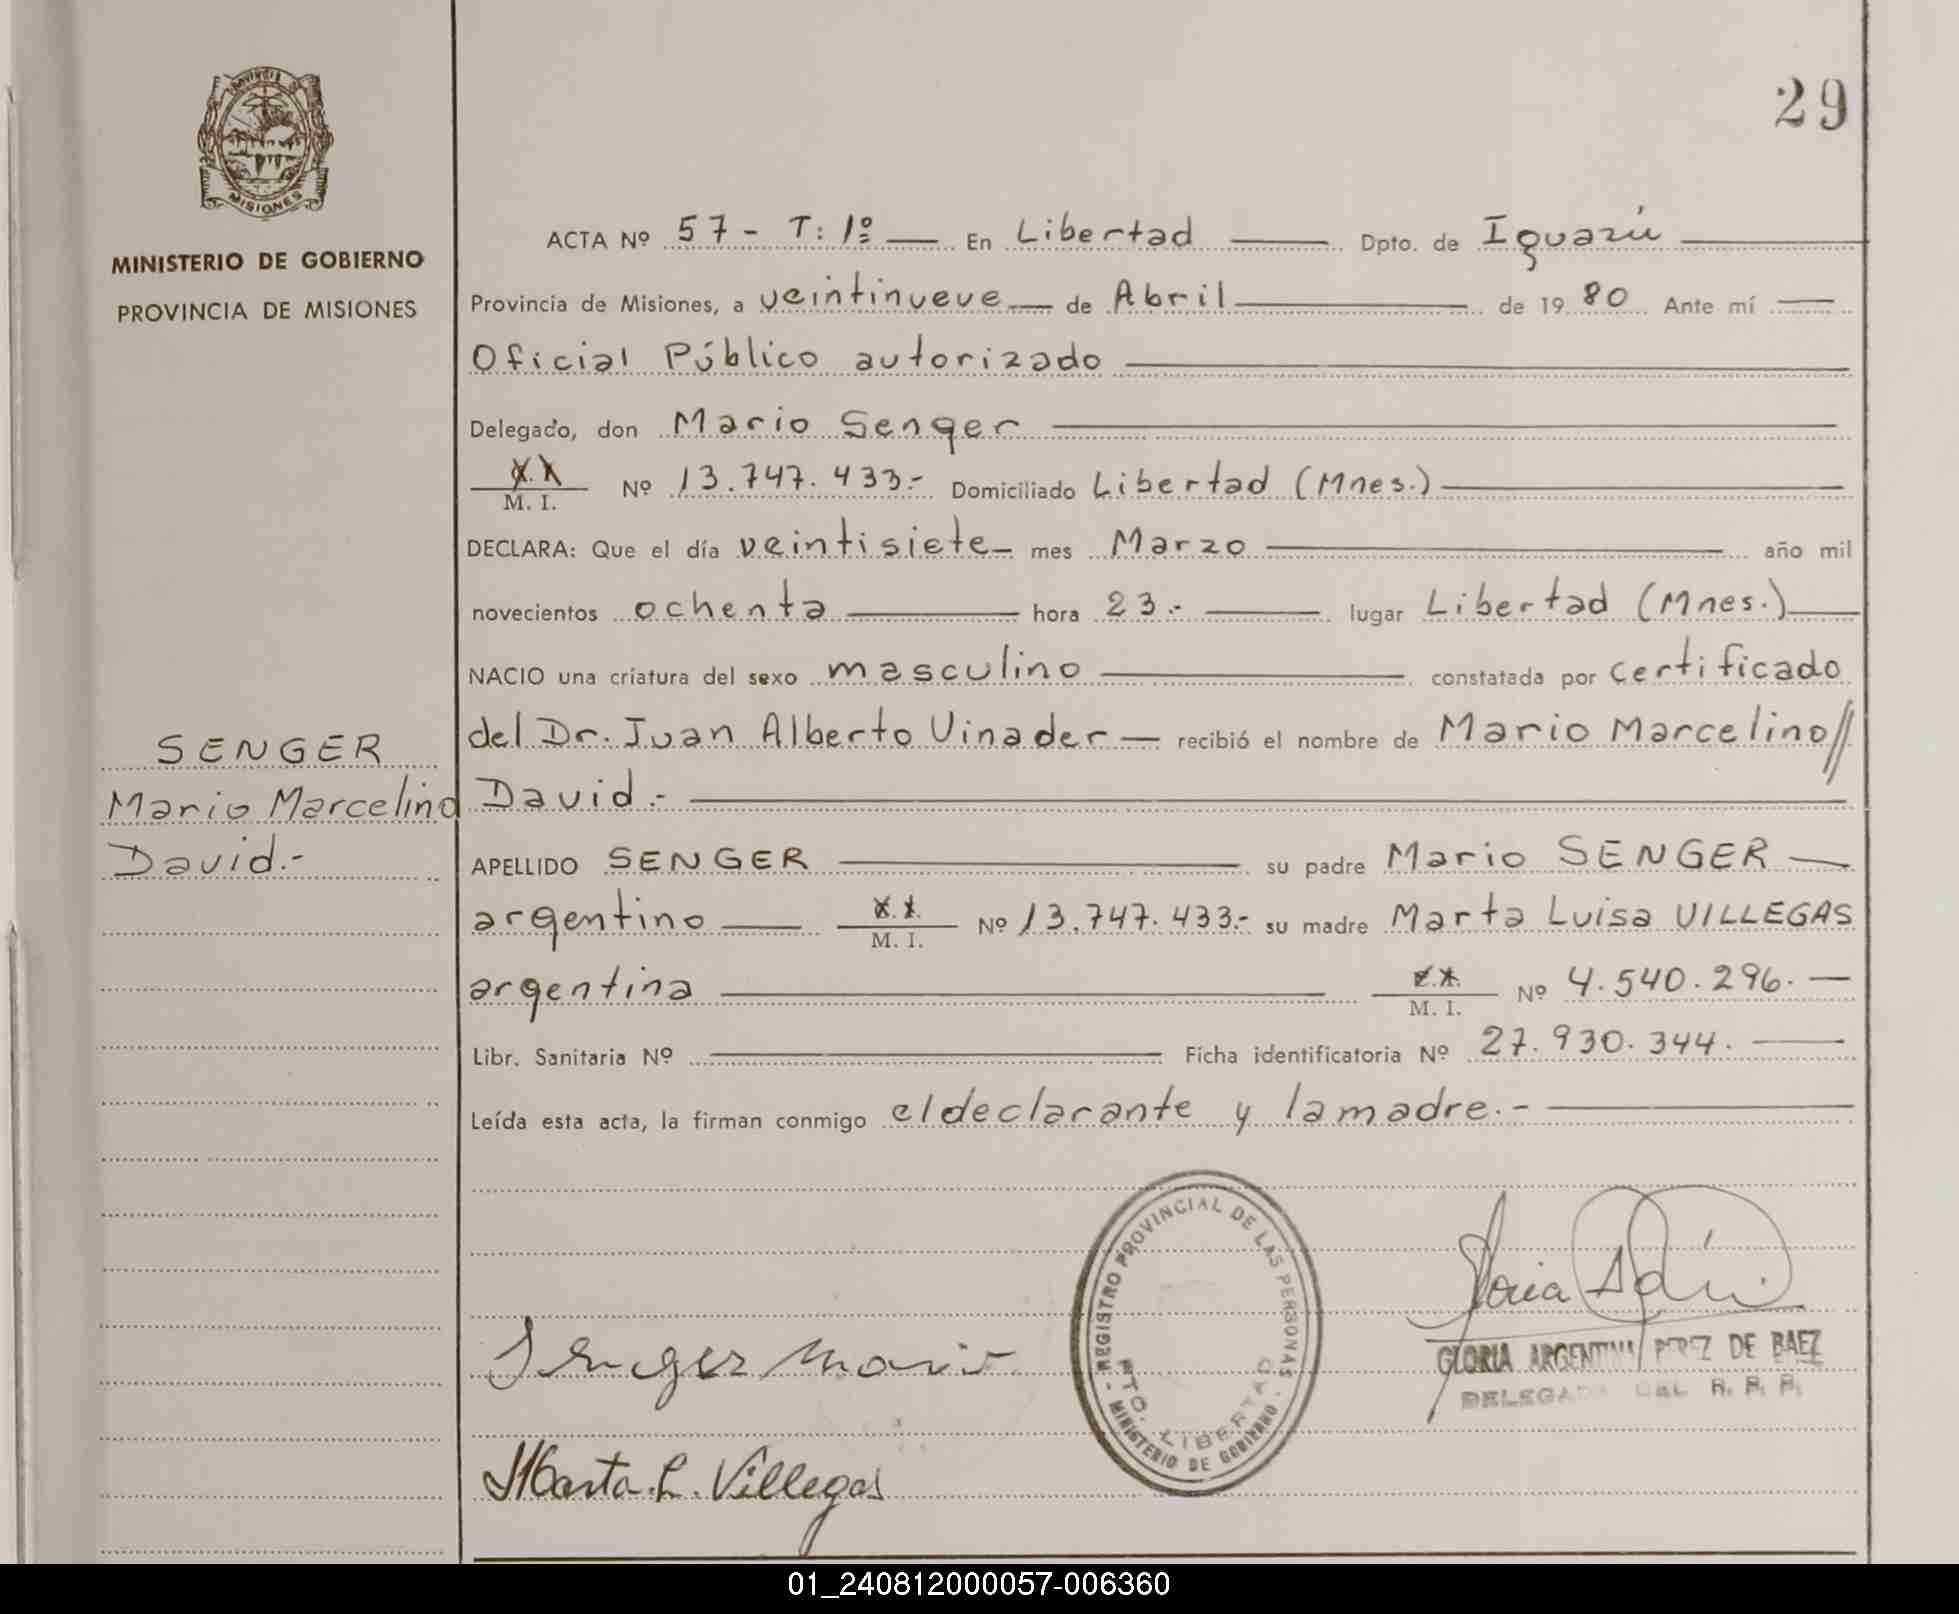 29
PROVINCIA
MISIONES
MINISTERIO DE GOBIERNO
PROVINCIA DE MISIONES
SENGER
Mario Marcelino
David.-
ACTA Nº 57 - T: 1º — En Libertad — Dpto. de Iguazú —
Provincia de Misiones, a veintinueve — de Abril — de 1980 Ante mí —
Oficial Público autorizado —
Delegado, don Mario Senger —
M. I. Nº 13.747.433.- Domiciliado Libertad (Mnes.) —
DECLARA: Que el día veintisiete — mes Marzo — año mil
novecientos ochenta — hora 23.- — lugar Libertad (Mnes.) —
NACIO una criatura del sexo masculino — constatada por certificado
del Dr. Juan Alberto Vinader — recibió el nombre de Mario Marcelino//
David.- —
APELLIDO SENGER — su padre Mario SENGER —
argentino — M. I. Nº 13.747.433.- su madre Marta Luisa VILLEGAS
argentina — M. I. Nº 4.540.296. —
Libr. Sanitaria Nº — Ficha identificatoria Nº 27.930.344. —
Leída esta acta, la firman conmigo el declarante y la madre.- —
REGISTRO PROVINCIAL DE LAS PERSONAS
PTO. LIBERTAD
- MINISTERIO DE GOBIERNO -
GLORIA ARGENTINA PEREZ DE BAEZ
DELEGADA DEL R. P. P.
Senger Mario
Marta L. Villegas
01_240812000057-006360